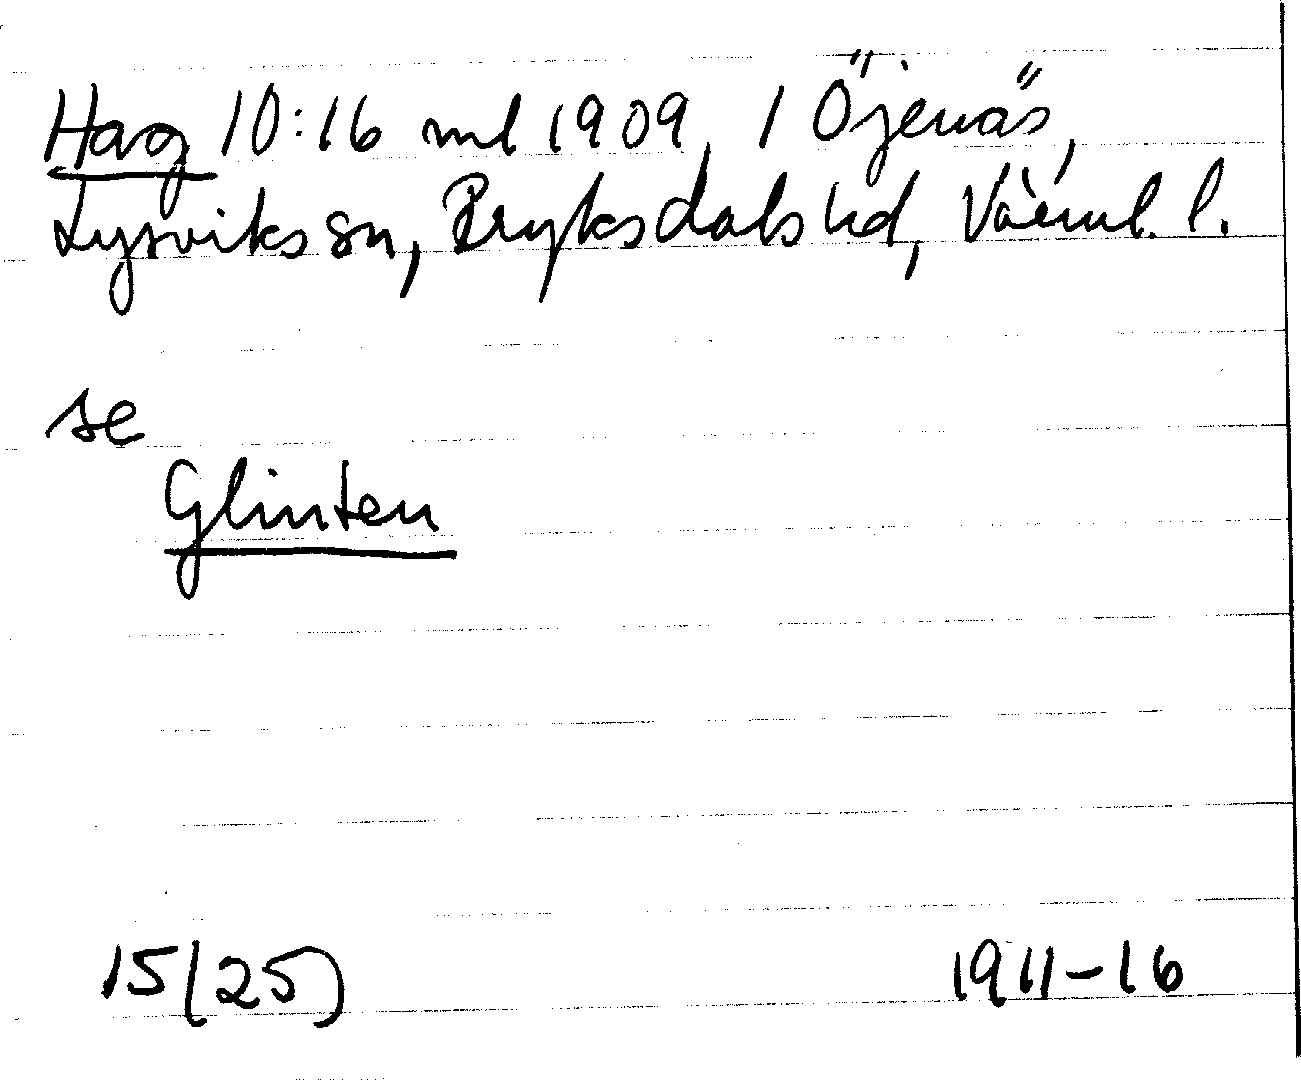 Hag 10:16 ml 1909, 1 Öjenäs,
Lysviks sn, Fryksdals hd, Värml. l.
se
Glinten
15(25) 1911-16